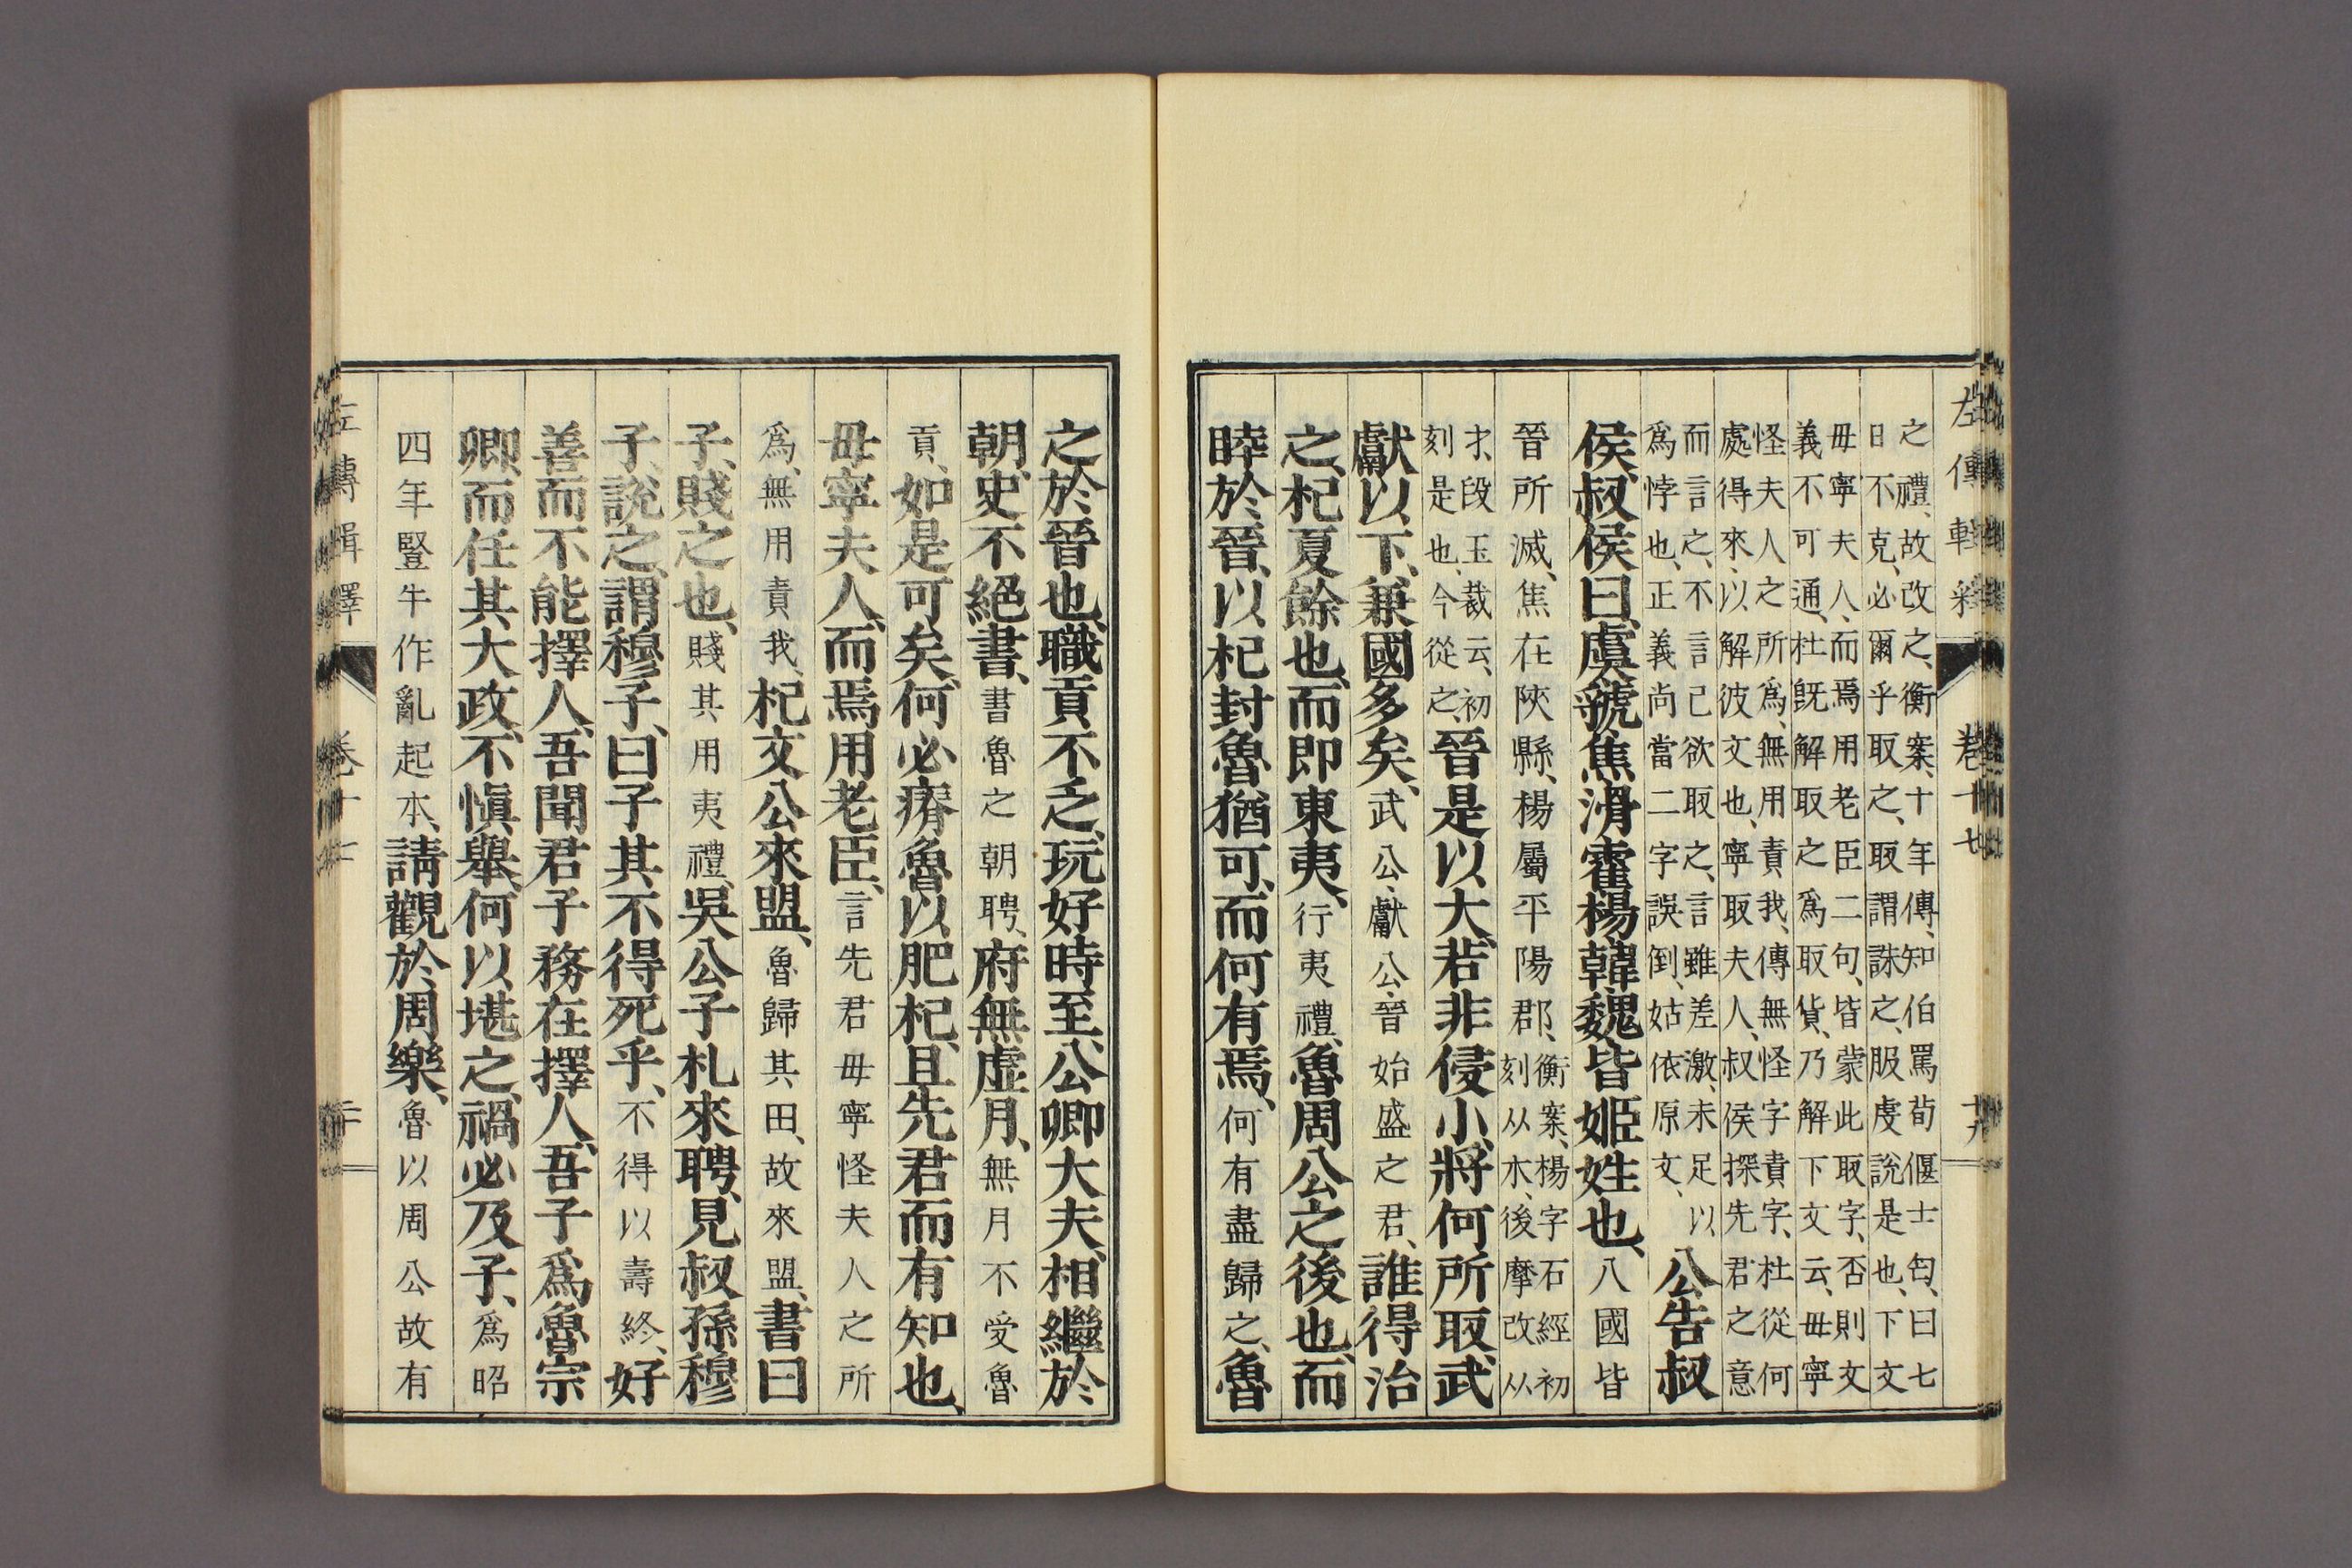 左傳輯釋 卷十七 十九
之禮、故改之、衡案、十年傳、知伯罵荀偃士匄、曰七
日不克、必爾乎取之、取謂誅之、服虔說是也、下文
毋寧夫人、而焉用老臣二句、皆蒙此取字、否則文
義不可通、杜旣解取之爲取貨、乃解下文云、毋寧
怪夫人之所爲、無用責我、傳無怪字責字、杜從何
處得來、以解彼文也、寧取夫人、叔侯探先君之意
而言之、不言己欲取之、言雖差激、未足以
爲悖也、正義尚當二字誤倒、姑依原文、
公告叔
侯、叔侯曰、虞虢焦滑霍楊韓魏、皆姬姓也、八國皆
晉所滅、焦在陝縣、楊屬平陽郡、
衡案、楊字石經初
刻从木、後摩改从
才、段玉裁云、初
刻是也、今從之、
晉是以大、若非侵小、將何所取、武
獻以下、兼國多矣、武公、獻公、晉始盛之君、誰得治
之、杞夏餘也、而即東夷、行夷禮、魯周公之後也、而
睦於晉、以杞封魯猶可、而何有焉、何有盡歸之、魯
之於晉也、職貢不乏、玩好時至、公卿大夫、相繼於
朝、史不絕書、書魯之朝聘、府無虛月、無月不受魯
貢、如是可矣、何必瘠魯以肥杞、且先君而有知也、
毋寧夫人、而焉用老臣、言先君毋寧怪夫人之所
爲、無用責我、杞文公來盟、魯歸其田、故來盟、書曰
子、賤之也、賤其用夷禮、吳公子札來聘、見叔孫穆
子、說之、謂穆子、曰子其不得死乎、不得以壽終、好
善而不能擇人、吾聞君子務在擇人、吾子爲魯宗
卿、而任其大政、不慎舉、何以堪之、禍必及子、爲昭
四年豎牛作亂起本、請觀於周樂、魯以周公故有
左傳輯釋 卷十七 二十